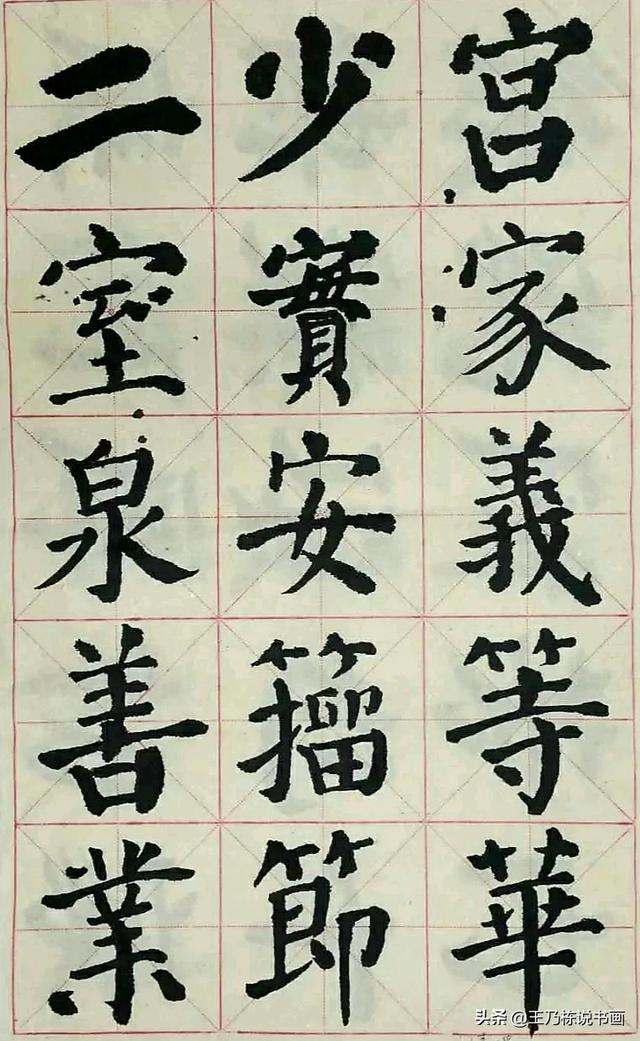 宮家義等華
少實安籀節
二室泉善業
头条 @王乃栋说书画